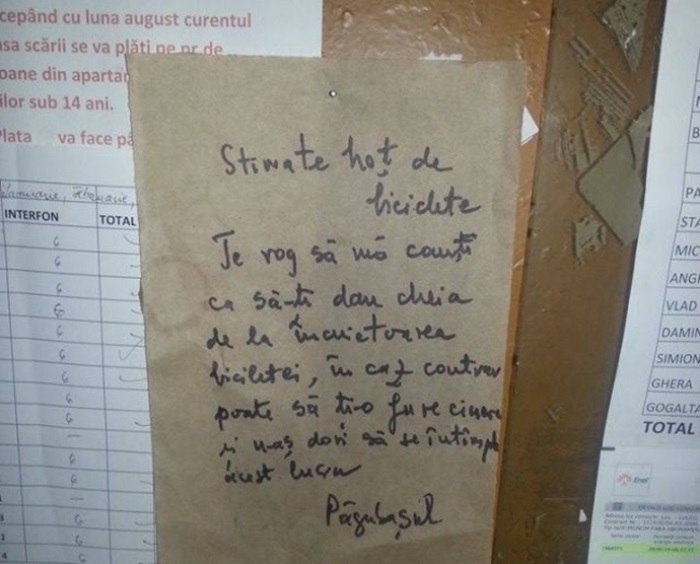 cepând cu luna august curentul
sa scării se va plăti pe nr de
oane din apartam
ilor sub 14 ani.
Plata va face pâ
Ianuarie, Februarie,
INTERFON TOTAL
6
6
6
6
6
6
6
6
6
—
6
6
—
6
6
6
Stimate hoț de
biciclete
Te rog să mă cauți
ca să-ți dau cheia
de la încuietoarea
bicicletei, în caz contrar
poate să ți-o fure cineva
și n-aș dori să se întâmple
acest lucru
Păgubașul
PA
STA
MIC
ANGH
VLAD
DAMIN
SIMION
GHERA
GOGALTA
TOTAL
Enel